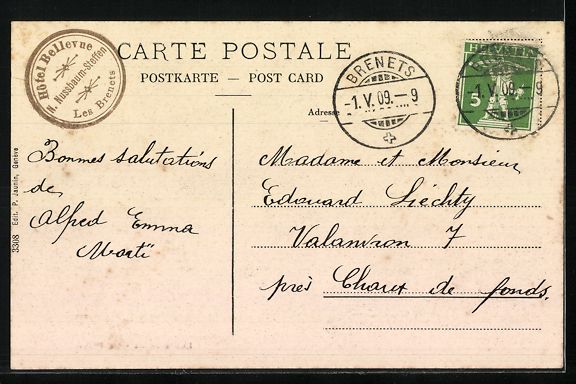 Hôtel Bellevue
N. Nussbaum-Steffen
Les Brenets
CARTE POSTALE
POSTKARTE — POST CARD
Adresse
BRENETS
-1.V.09.-9
HELVETIA
5
-1.V.09.-9
Bonnes salutations
de
Alfred Emma
Madame et Monsieur
Edouard Liéchty
Valanvron 7
près Chaux de fonds.
3308 Edit. P. Jaunin, Genève